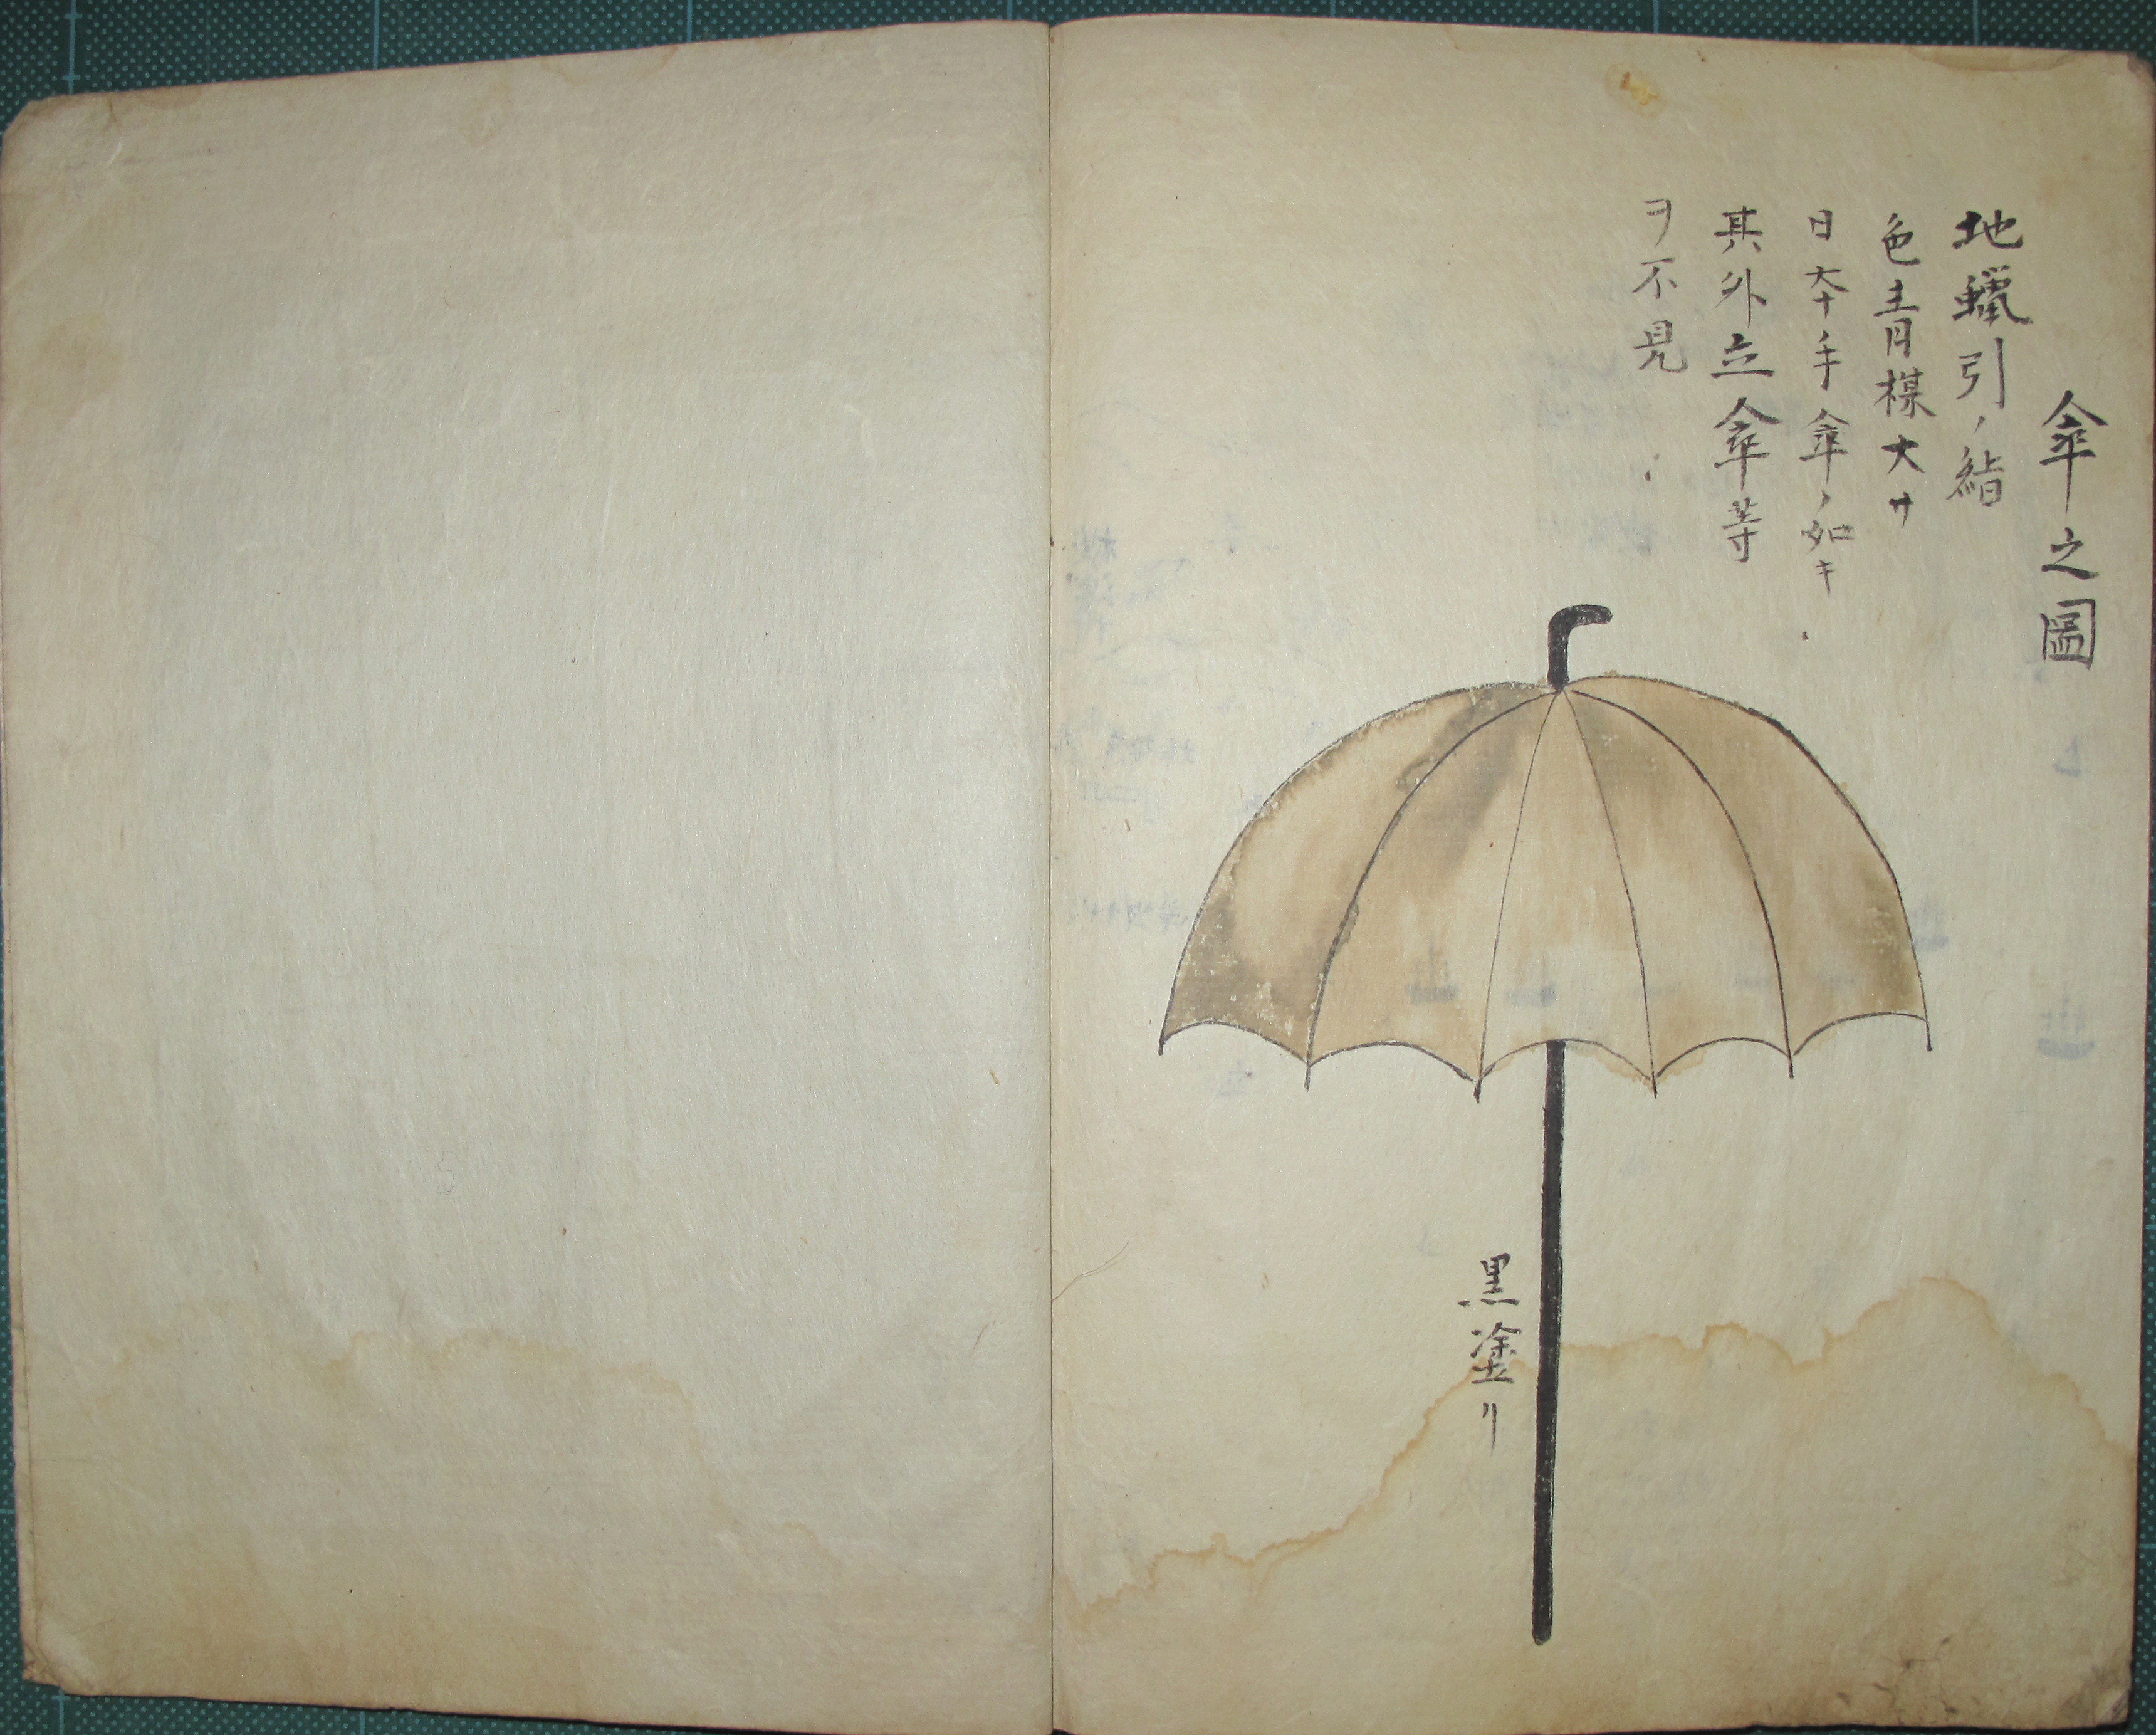 傘之圖
地蠟引ノ絹
色青楳大サ
日夲手傘ノ如キ
其外立傘等
ヲ不見
黒塗リ